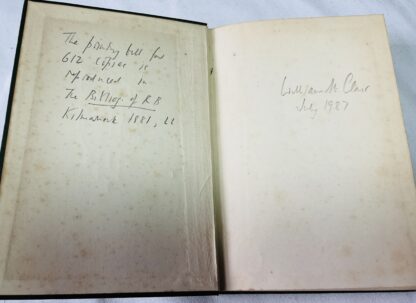 The printing bill for
612 copies is
reproduced in
The Bibliog. of RB
Kilmarnock 1881, LL
William St Clair
July 1987